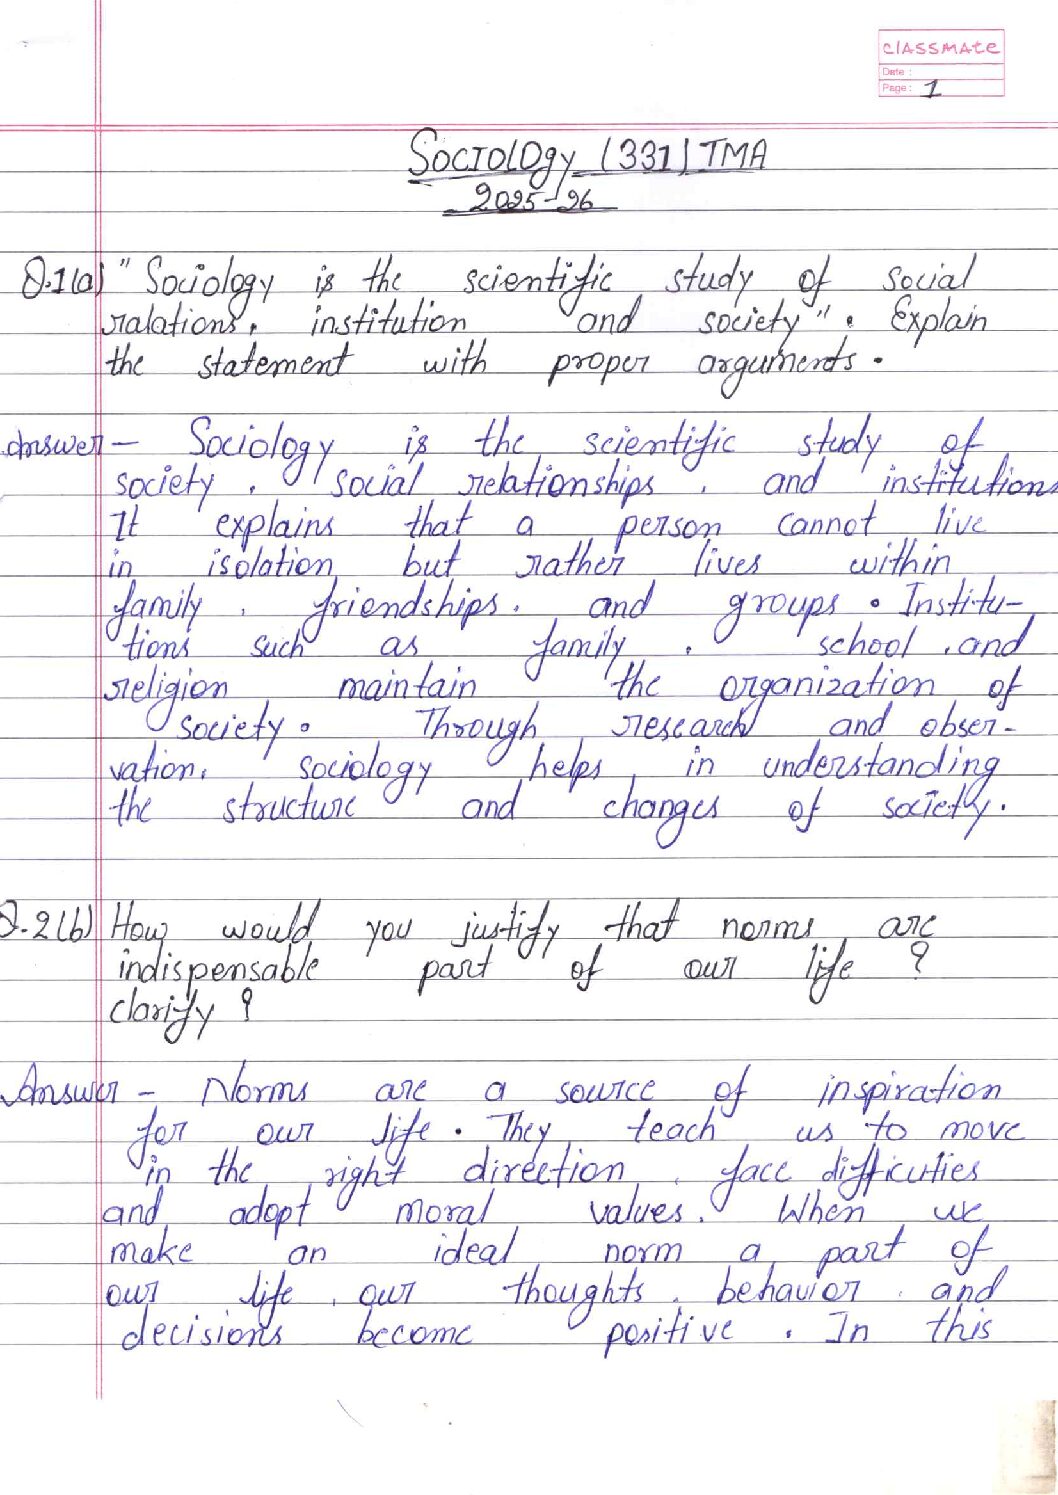 classmate
Date :
Page : 1
Sociology (331) TMA
2025-26
Q.1(a) "Sociology is the scientific study of social
ralations, institution and society". Explain
the statement with proper arguments.
Answer - Sociology is the scientific study of
society, social relationships, and institutions
It explains that a person cannot live
in isolation but rather lives within
family, friendships, and groups. Institu-
tions such as family, school, and
religion maintain the organization of
society. Through research and obser-
vation, sociology helps in understanding
the structure and changes of society.
Q.2(b) How would you justify that norms are
indispensable part of our life ?
clarify ?
Answer - Norms are a source of inspiration
for our life. They teach us to move
in the right direction, face difficulties
and adopt moral values. When we
make an ideal norm a part of
our life, our thoughts, behavior, and
decisions become positive. In this